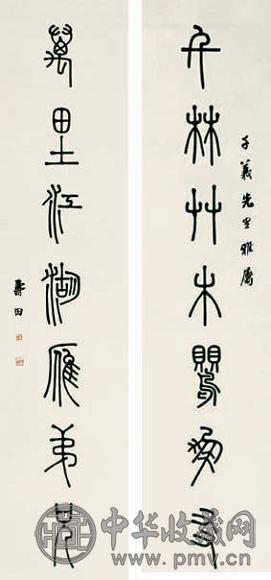 千林艸木鸎朋友
千義先生雅屬
萬里江湖雁弟兄
壽田
中华收藏网
www.pmv.cn